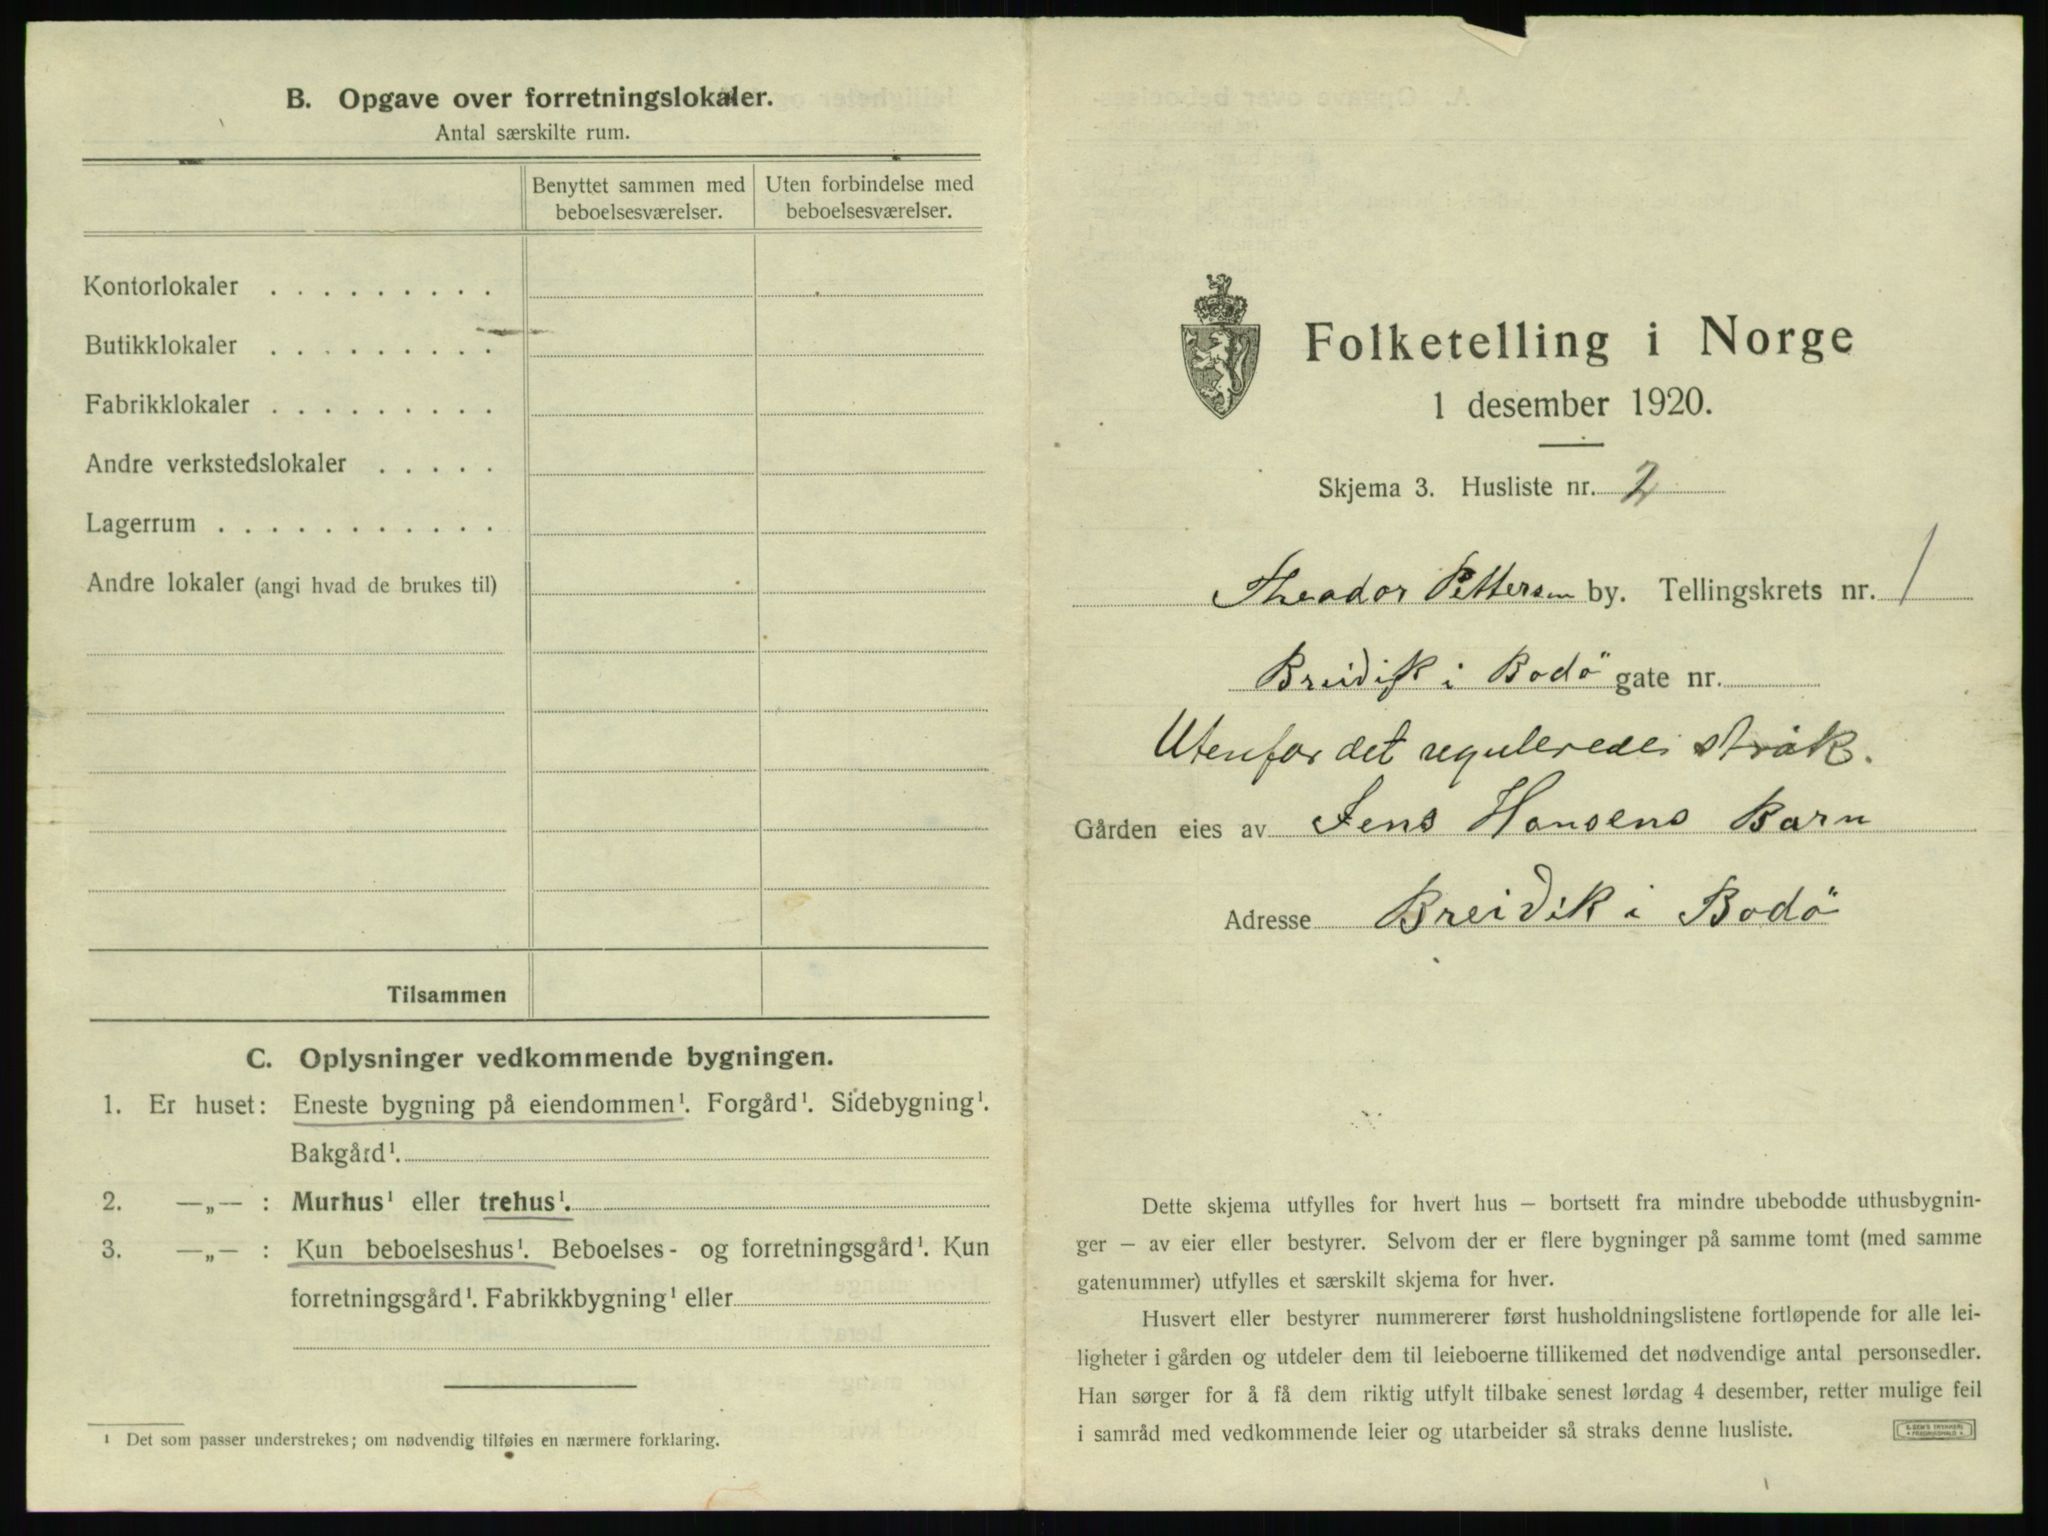 B. Opgave over forretningslokaler.
Antal særskilte rum.
Benyttet sammen med
beboelsesværelser.
Uten forbindelse med
beboelsesværelser.
Kontorlokaler
Butikklokaler
Fabrikklokaler
Andre verkstedslokaler
Lagerrum
Andre lokaler (angi hvad de brukes til)
Tilsammen
C. Oplysninger vedkommende bygningen.
1. Er huset: Eneste bygning på eiendommen¹. Forgård¹. Sidebygning¹.
Bakgård¹.
2. —„— : Murhus¹ eller trehus¹.
3. —„— : Kun beboelseshus¹. Beboelses- og forretningsgård¹. Kun
forretningsgård¹. Fabrikkbygning¹ eller
¹ Det som passer understrekes; om nødvendig tilføies en nærmere forklaring.
Folketelling i Norge
1 desember 1920.
Skjema 3. Husliste nr. 2
Theodor Pettersen by. Tellingskrets nr. 1
Breidik i Bodö gate nr.
Utenfor det regulerede strøk.
Gården eies av Jens Hansens Barn
Adresse Breidik i Bodö
Dette skjema utfylles for hvert hus – bortsett fra mindre ubebodde uthusbygnin-
ger – av eier eller bestyrer. Selvom der er flere bygninger på samme tomt (med samme
gatenummer) utfylles et særskilt skjema for hver.
Husvert eller bestyrer nummererer først husholdningslistene fortløpende for alle lei-
ligheter i gården og utdeler dem til leieboerne tillikemed det nødvendige antal personsedler.
Han sørger for å få dem riktig utfylt tilbake senest lørdag 4 desember, retter mulige feil
i samråd med vedkommende leier og utarbeider så straks denne husliste.